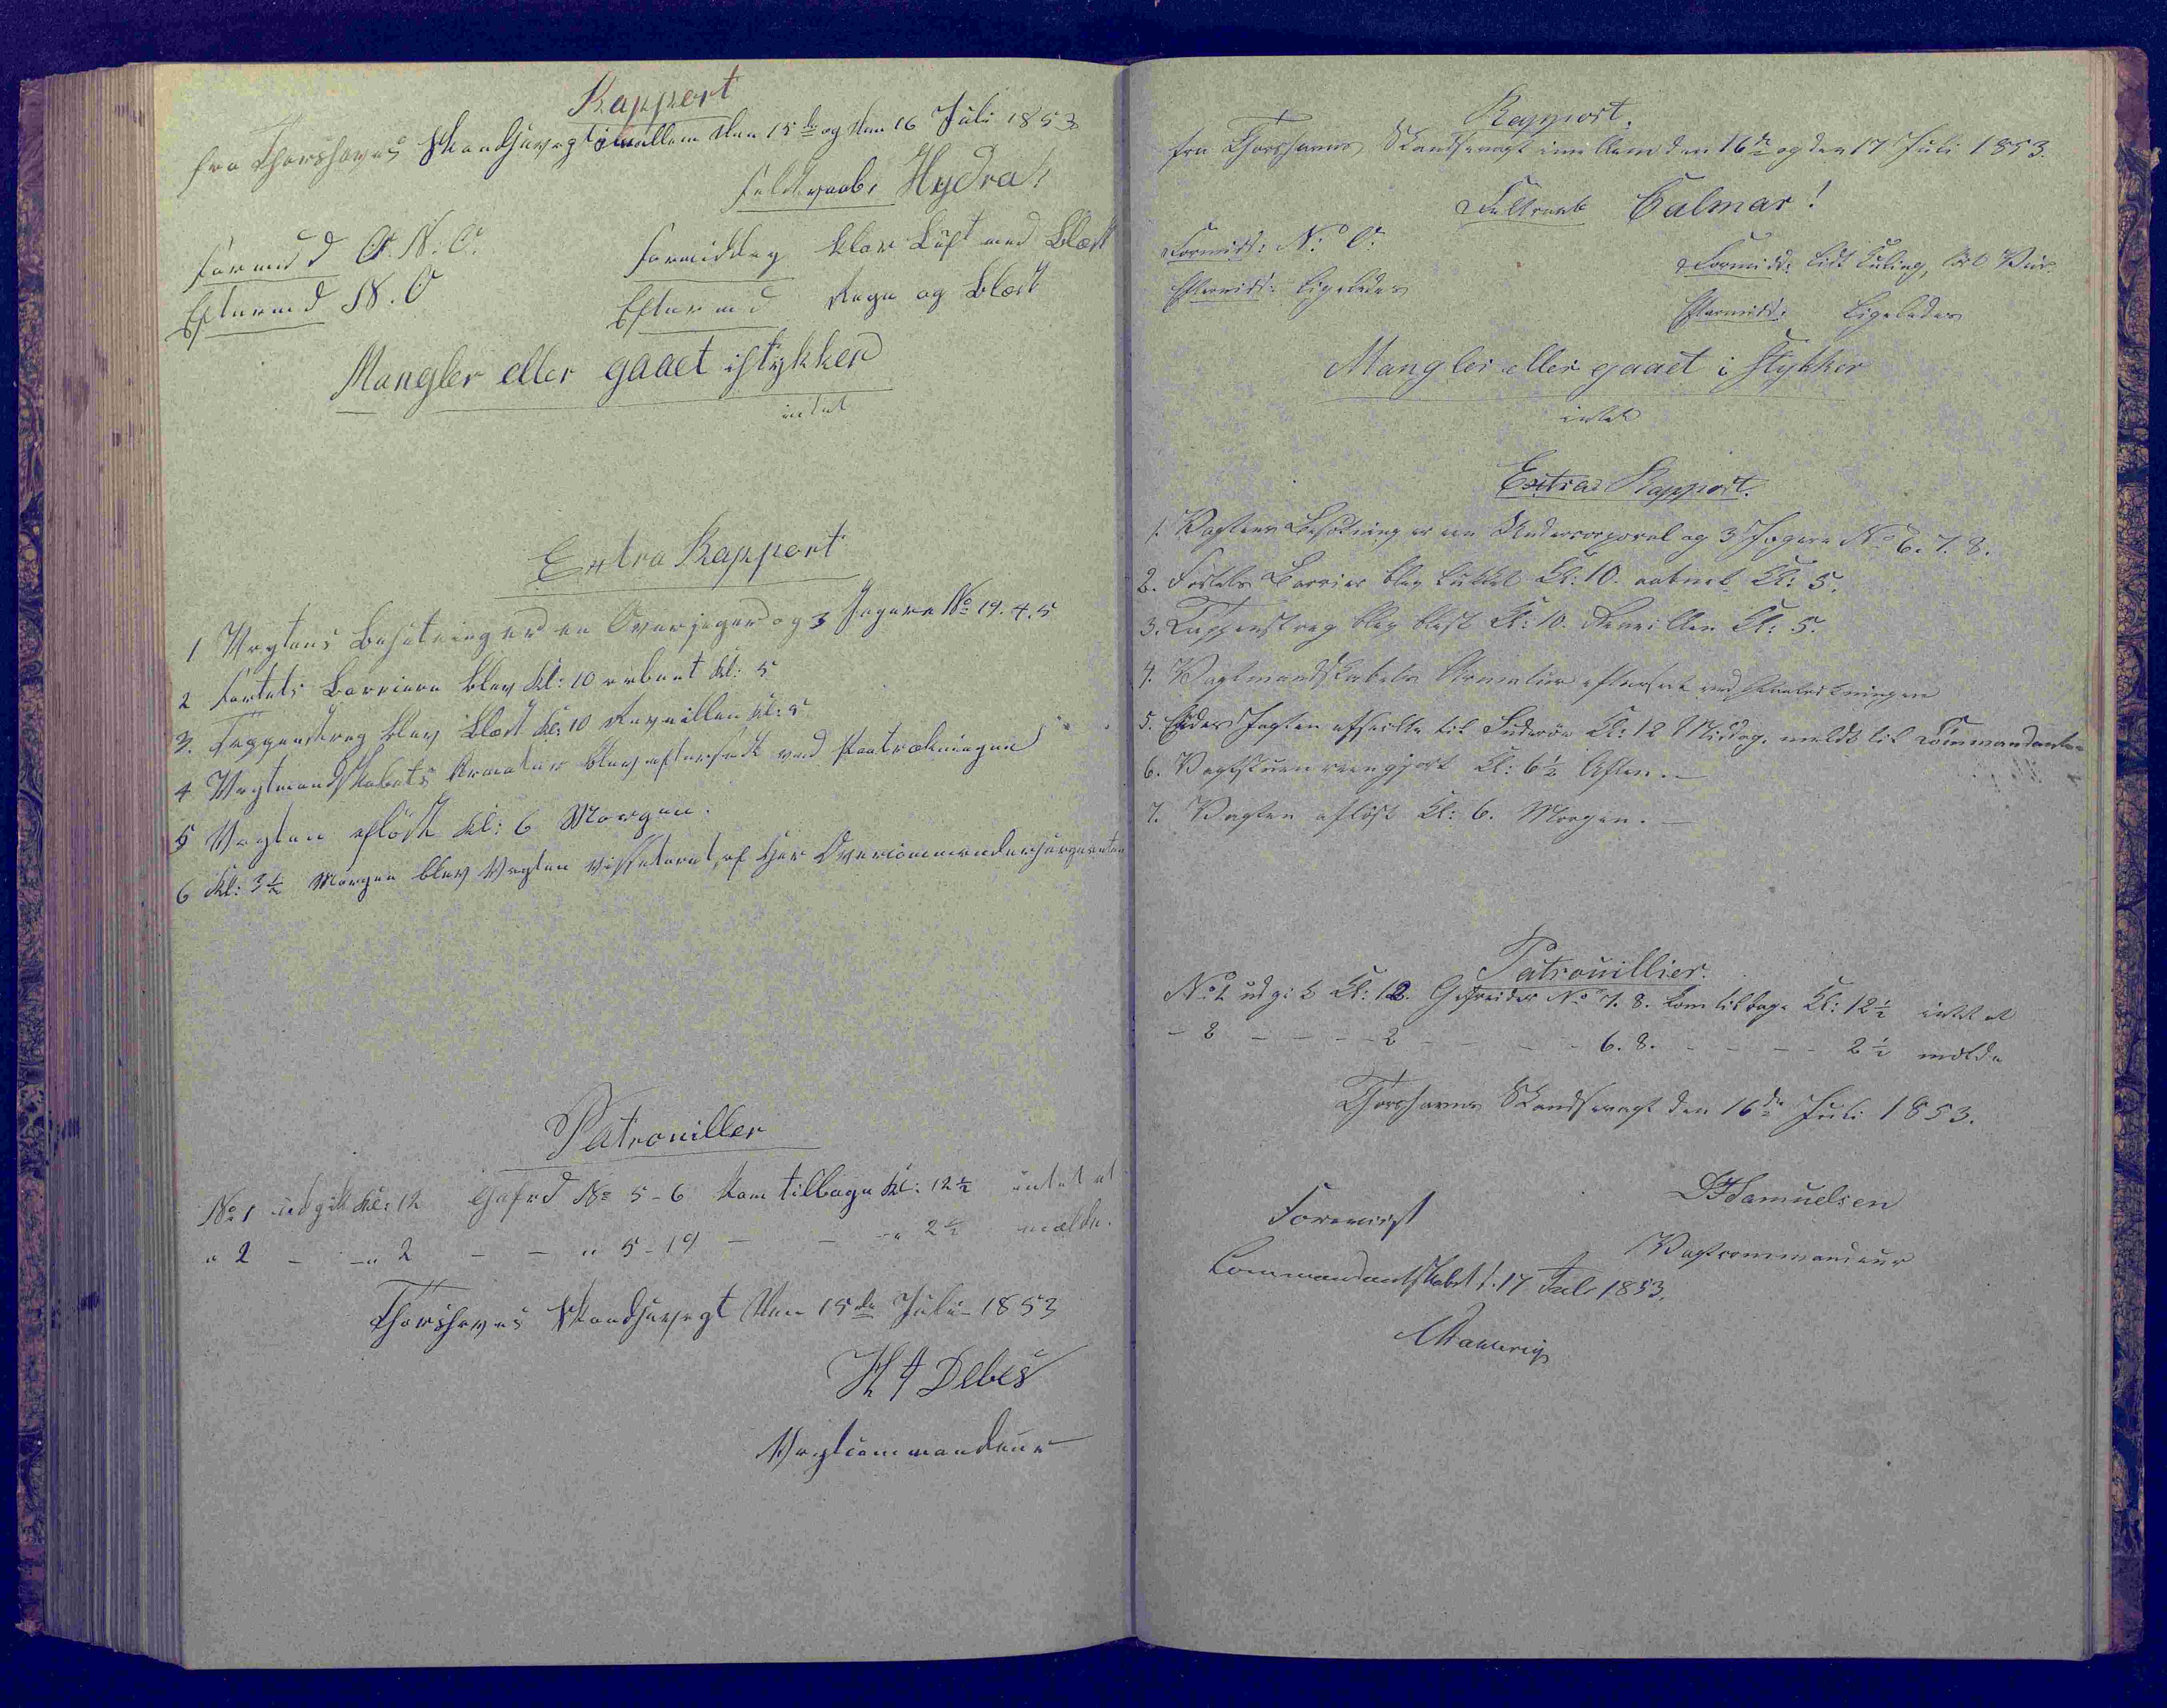 Rapport
fra Thorshavns Skandsevagt imellem den 15de og den 16 Juli 1853
Feldtraab, Hydra!
Formidd O. N. O. Formiddag klar Luft med Blæst
Eftermd N. O Eftermd Regn og Blæst
Mangler eller gaaet istykker
intet
Extra Rapport
1 Vagtens Besetning er en Overjæger og 3 Jægere No 19. 4. 5
2 Fortets Barriere blev Kl: 10 aabnet Kl: 5
3. Tappenstreg blev blæst Kl: 10 Reveillen Kl: 5
4 Vagtmandskabets Armatur blev efterseet ved Fratrædningen
5 Vagten afløst Kl: 6 Morgen.
6 Kl: 3½ Morgen blev Vagten visseteret, af Her Overcommandersergeanten
Patrouiller
No 1 udgik Kl: 12 Gefrd No 5-6 kom tilbage Kl: 12½ intet at
" 2 - -" 2 - - " 5-19 - - -" 2½ mælde.
Thorshavns Skandsevagt den 15de Juli 1853
H A Debes
Vagtcommandeur
Rapport.
fra Thorshavns Skandsevagt imellem den 16de og den 17 Juli 1853.
Feltraab Calmar!
Formidd: N. O. Formidd: lidt Kuling, Veir.
Eftermidd: ligeledes Eftermidd: ligeledes
Mangler eller gaaet i stykker
intet
Extra Rapport.
1. Vagtens Besætning er en Undercorporal og 3 Jægere No 6. 7. 8.
2. Fortets Barriere blev lukket Kl: 10. aabnet Kl: 5.
3. Tappenstreg blev blæst Kl: 10. Reveillen Kl: 5.
4. Vagtmandskabets Armatur efterseet ved
5. Jagten afseilte til Suderøe Kl: 12 Middag. meldt til Commandanten
6. Vagtstuen reengjort Kl: 6½ Aften. —
7. Vagten afløst Kl: 6. Morgen. —
Patrouillier.
No 1 udgik Kl: 12. Gefreider No 7. 8. kom tilbage Kl: 12½ intet at
- 2 - - - - 2 - - - - 6. 8. - - - - 2½ melde
Thorshavns Skandsevagt den 16de Juli 1853.
Samuelsen
Foreviist Vagtcommandeur
Commandantskabet d. 17 Juli 1853.